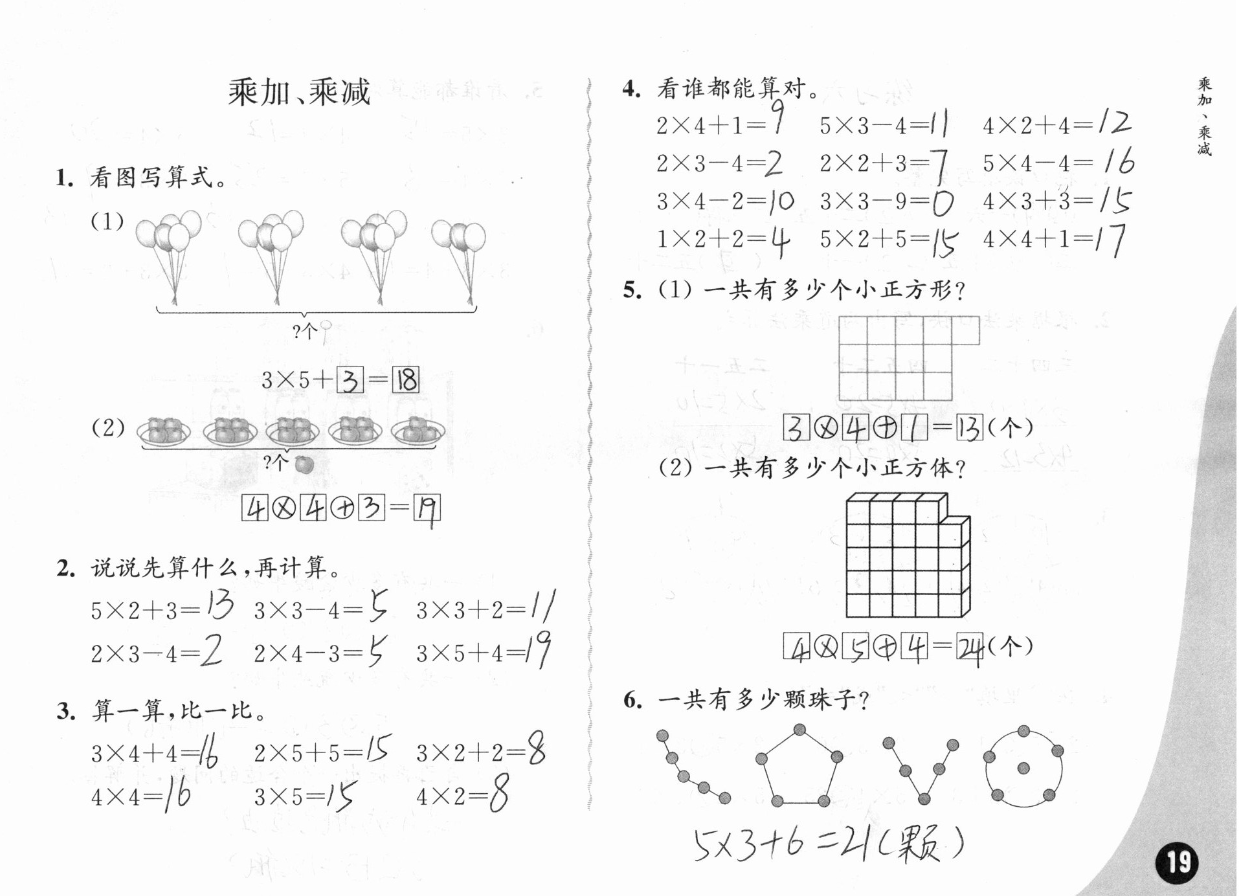 乘加、乘减
1. 看图写算式。
(1)
?个
3×5+3=18
(2)
?个
4×4+3=19
2. 说说先算什么,再计算。
5×2+3=13 3×3-4=5 3×3+2=11
2×3-4=2 2×4-3=5 3×5+4=19
3. 算一算,比一比。
3×4+4=16 2×5+5=15 3×2+2=8
4×4=16 3×5=15 4×2=8
4. 看谁都能算对。
2×4+1=9 5×3-4=11 4×2+4=12
2×3-4=2 2×2+3=7 5×4-4=16
3×4-2=10 3×3-9=0 4×3+3=15
1×2+2=4 5×2+5=15 4×4+1=17
5. (1) 一共有多少个小正方形?
3×4+1=13(个)
(2) 一共有多少个小正方体?
4×5+4=24(个)
6. 一共有多少颗珠子?
5×3+6=21(颗)
乘加、乘减
19